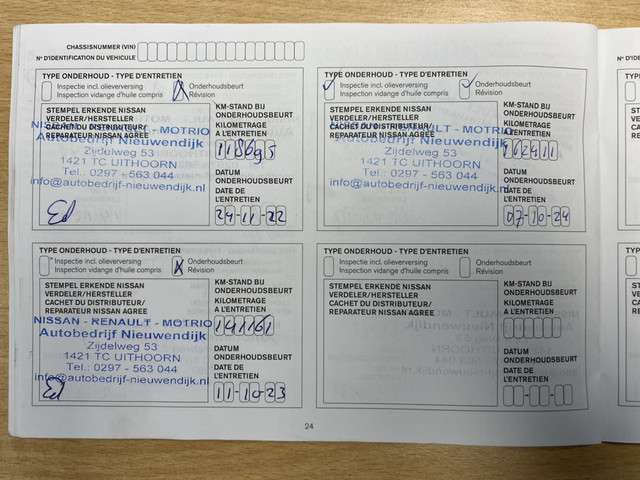 CHASSISNUMMER (VIN)
N° D'IDENTIFICATION DU VEHICULE
TYPE ONDERHOUD - TYPE D'ENTRETIEN
Inspectie incl. olieverversing
Inspection vidange d'huile compris
Onderhoudsbeurt
Révision
STEMPEL ERKENDE NISSAN
VERDELER/HERSTELLER
CACHET DU DISTRIBUTEUR/
REPARATEUR NISSAN AGREE
NISSAN - RENAULT - MOTRIO
Autobedrijf Nieuwendijk
Zijdelweg 53
1421 TC UITHOORN
Tel.: 0297 - 563 044
info@autobedrijf-nieuwendijk.nl
KM-STAND BIJ
ONDERHOUDSBEURT
KILOMETRAGE
A L'ENTRETIEN
118695
DATUM
ONDERHOUDSBEURT
DATE DE
L'ENTRETIEN
24-11-22
TYPE ONDERHOUD - TYPE D'ENTRETIEN
Inspectie incl. olieverversing
Inspection vidange d'huile compris
Onderhoudsbeurt
Révision
STEMPEL ERKENDE NISSAN
VERDELER/HERSTELLER
CACHET DU DISTRIBUTEUR/
REPARATEUR NISSAN AGREE
RENAULT - MOTRIO
Autobedrijf Nieuwendijk
Zijdelweg 53
1421 TC UITHOORN
Tel.: 0297 - 563 044
info@autobedrijf-nieuwendijk.nl
KM-STAND BIJ
ONDERHOUDSBEURT
KILOMETRAGE
A L'ENTRETIEN
162411
DATUM
ONDERHOUDSBEURT
DATE DE
L'ENTRETIEN
07-10-24
TYPE ONDERHOUD - TYPE D'ENTRETIEN
Inspectie incl. olieverversing
Inspection vidange d'huile compris
Onderhoudsbeurt
Révision
STEMPEL ERKENDE NISSAN
VERDELER/HERSTELLER
CACHET DU DISTRIBUTEUR/
REPARATEUR NISSAN AGREE
NISSAN - RENAULT - MOTRIO
Autobedrijf Nieuwendijk
Zijdelweg 53
1421 TC UITHOORN
Tel.: 0297 - 563 044
info@autobedrijf-nieuwendijk.nl
KM-STAND BIJ
ONDERHOUDSBEURT
KILOMETRAGE
A L'ENTRETIEN
141161
DATUM
ONDERHOUDSBEURT
DATE DE
L'ENTRETIEN
11-10-23
TYPE ONDERHOUD - TYPE D'ENTRETIEN
Inspectie incl. olieverversing
Inspection vidange d'huile compris
Onderhoudsbeurt
Révision
STEMPEL ERKENDE NISSAN
VERDELER/HERSTELLER
CACHET DU DISTRIBUTEUR/
REPARATEUR NISSAN AGREE
KM-STAND BIJ
ONDERHOUDSBEURT
KILOMETRAGE
A L'ENTRETIEN
DATUM
ONDERHOUDSBEURT
DATE DE
L'ENTRETIEN
24